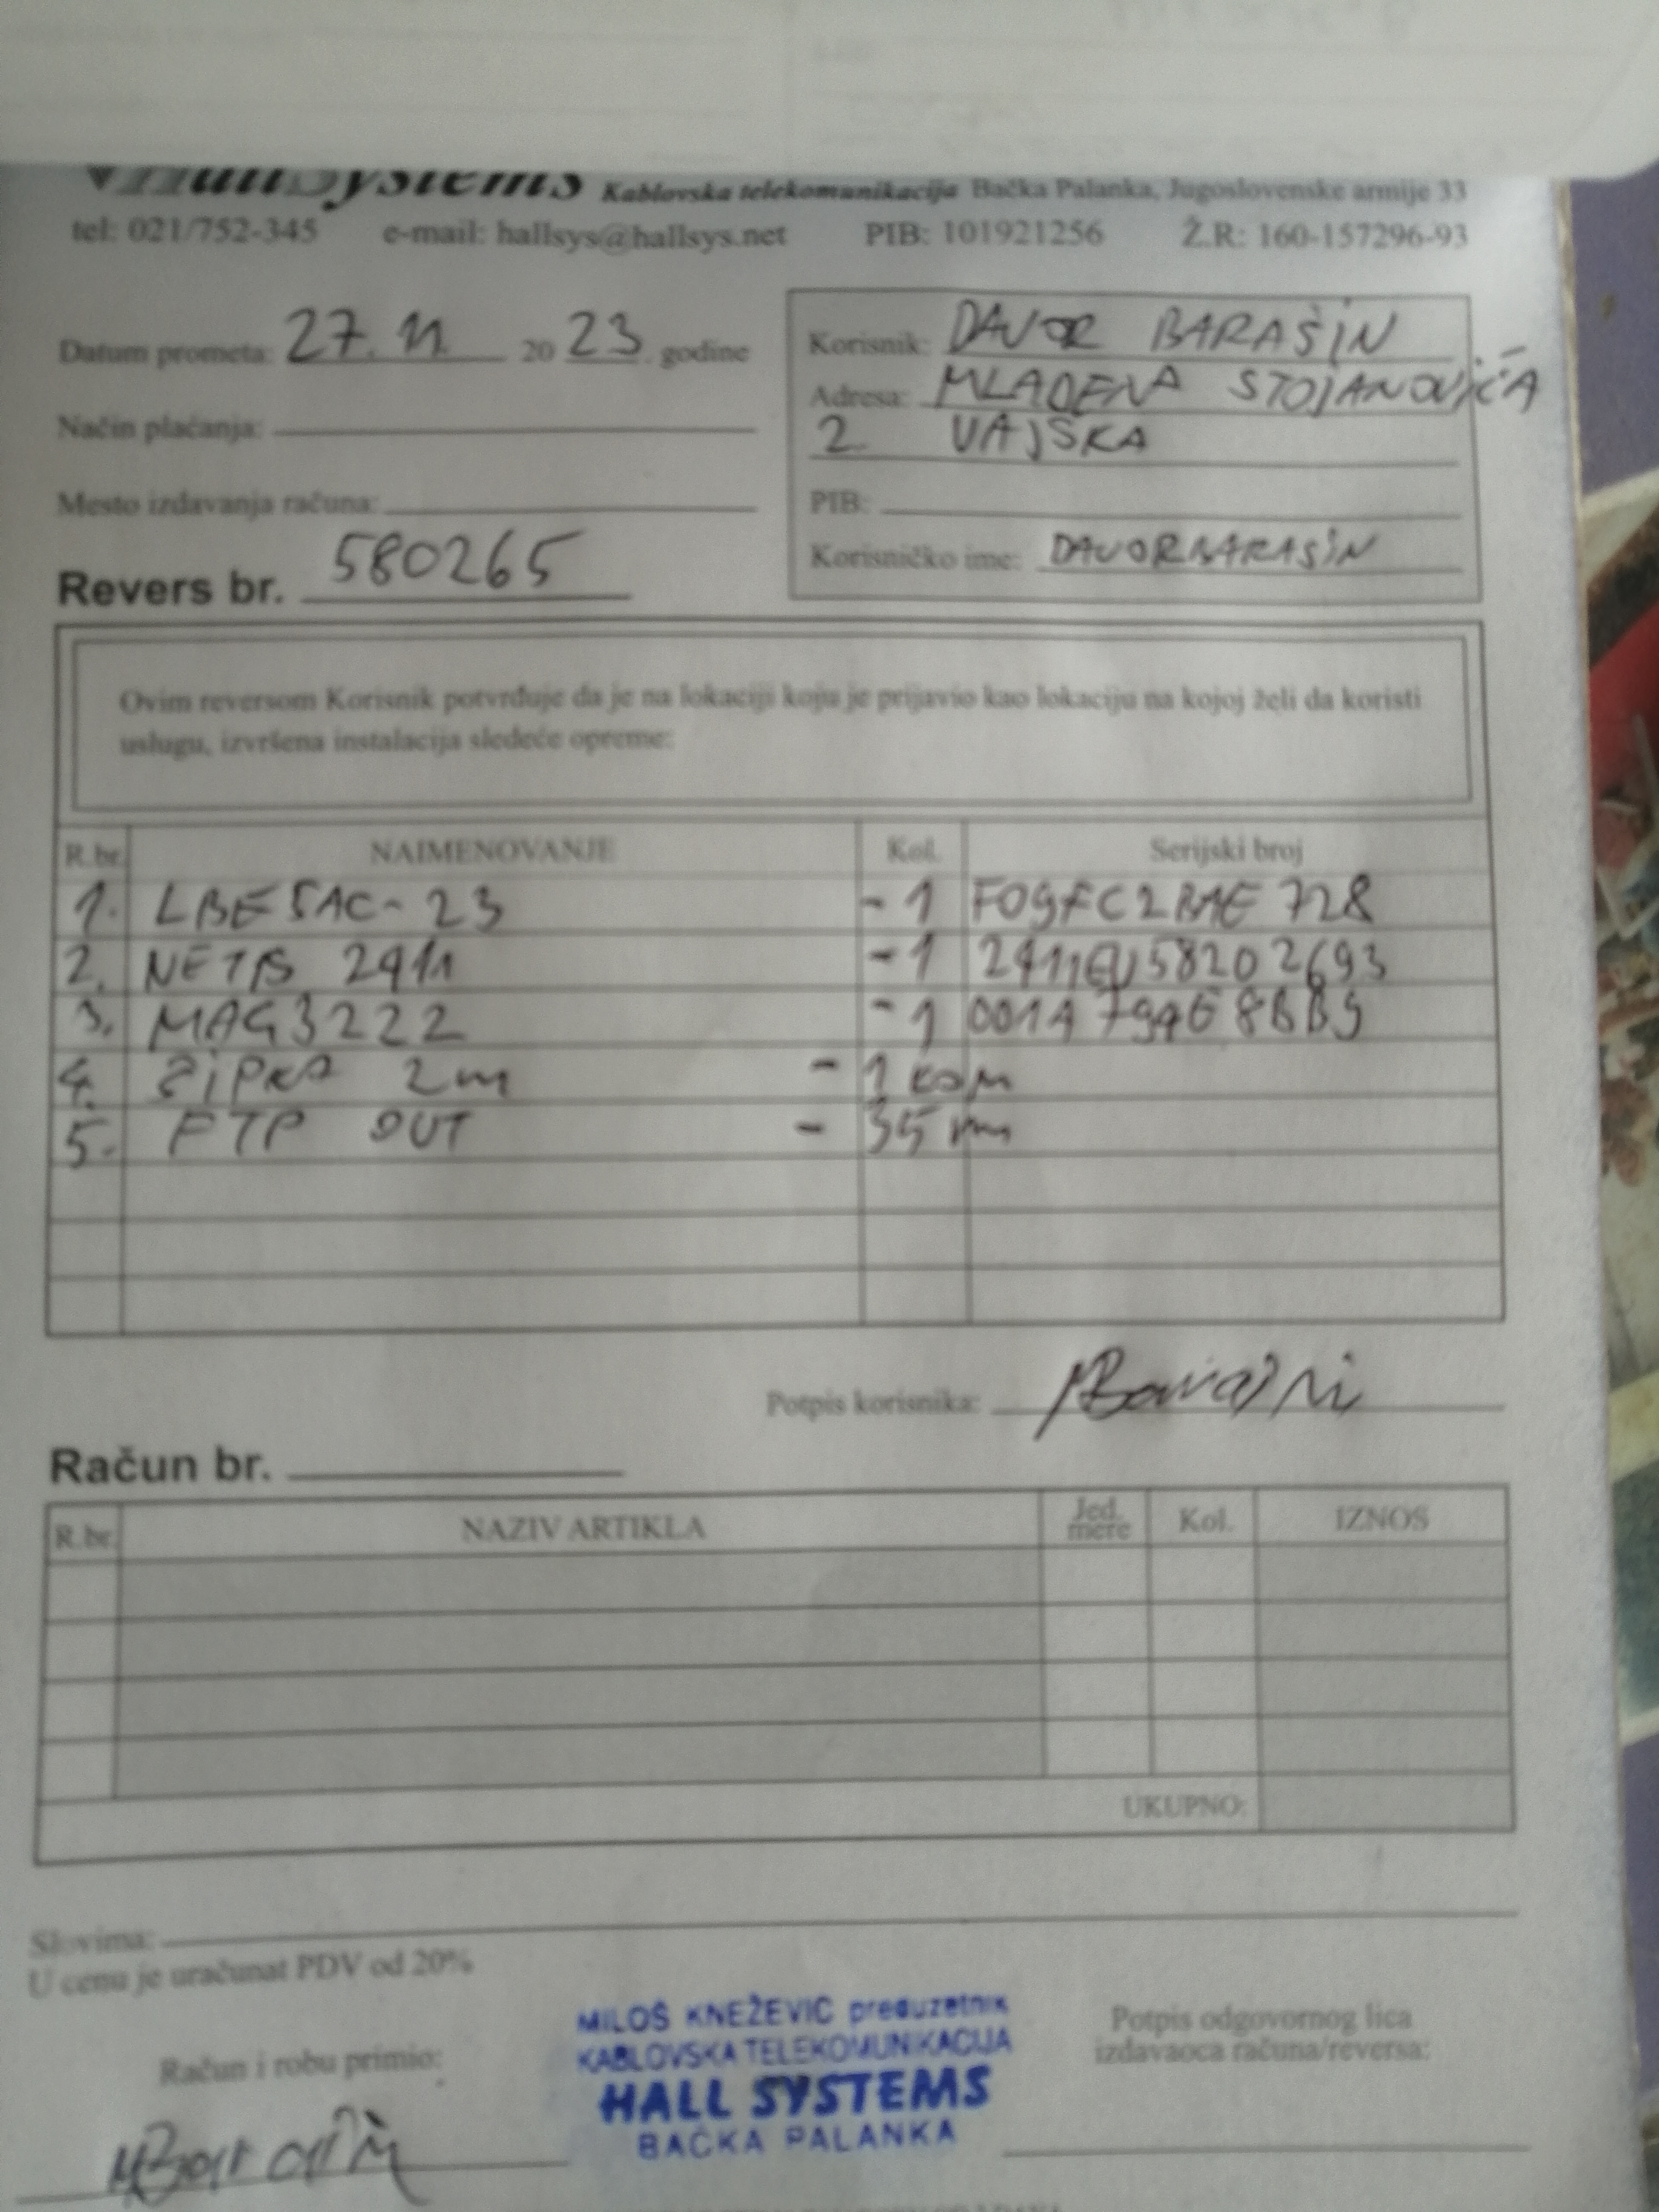 HallSystems Kablovska telekomunikacija Bačka Palanka, Jugoslovenske armije 33
tel: 021/752-345 e-mail: hallsys@hallsys.net PIB: 101921256 Ž.R: 160-157296-93
Datum prometa: 27. 11. 20 23. godine
Korisnik: DAVOR BARAŠIN
Adresa: MLADENA STOJANOVIĆA
2 VAJSKA
Način plaćanja:
Mesto izdavanja računa:
PIB:
Korisničko ime: DAVORBARASIN
Revers br. 580265
Ovim reversom Korisnik potvrđuje da je na lokaciji koju je prijavio kao lokaciju na kojoj želi da koristi
uslugu, izvršena instalacija sledeće opreme:
R.br. NAIMENOVANJE Kol. Serijski broj
1. LBE5AC-23 -1 F09FC2BAE728
2. NETIS 2411 -1 2411EU58202693
3. MAG3222 -1 001A79
4. 2m - 1 kom
5. FTP OUT - 35 m
Potpis korisnika:
Račun br.
R.br. NAZIV ARTIKLA Jed. mere Kol. IZNOS
UKUPNO:
Slovima:
U cenu je uračunat PDV od 20%
MILOŠ KNEŽEVIĆ preduzetnik
KABLOVSKA TELEKOMUNIKACIJA
HALL SYSTEMS
BAČKA PALANKA
Račun i robu primio:
Potpis odgovornog lica
izdavaoca računa/reversa: